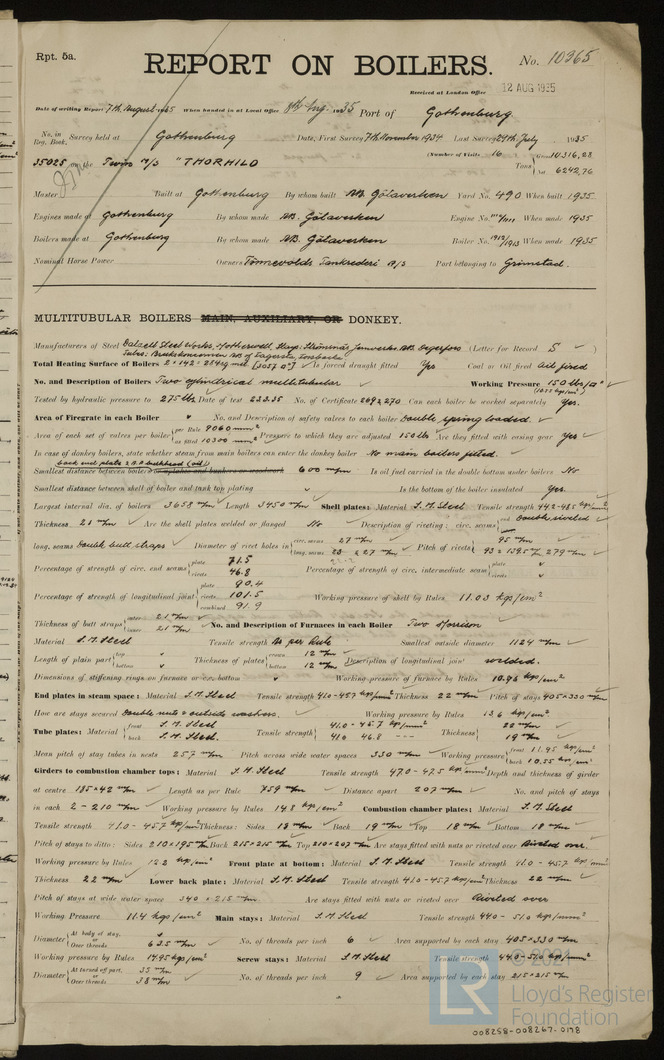 Rpt. 5a.
REPORT ON BOILERS.
No. 10365
Received at London Office
12 AUG 1935
Date of writing Report 7th August 1935 When handed in at Local Office 8th Aug. 1935 Port of Gothenburg
No. in Reg. Book. Survey held at Gothenburg Date, First Survey 7th November 1934 Last Survey 29th July 1935
(Number of Visits 16
35025 on the Twin M/S "THORHILD Tons Gross 10316,28 Net 6242,76
Master Built at Gothenburg By whom built AB. Götaverken Yard No. 490 When built 1935
Engines made at Gothenburg By whom made AB. Götaverken Engine No. When made 1935
Boilers made at Gothenburg By whom made AB. Götaverken Boiler No. 1912/1913 When made 1935
Nominal Horse Power Owners Tønnevolds Tankrederi A/S Port belonging to Grimstad.
MULTITUBULAR BOILERS MAIN, AUXILIARY, OR DONKEY.
Manufacturers of Steel Dalzell Steel Works, Motherwell, Degerfors (Letter for Record S)
Total Heating Surface of Boilers 2 × 142 = 284 sq met (3057 □') Is forced draught fitted Yes Coal or Oil fired Oil fired
No. and Description of Boilers Two cylindrical multitubular Working Pressure 150 lbs/□"
Tested by hydraulic pressure to 275 lbs Date of test 23.2.35 No. of Certificate 269 & 270 Can each boiler be worked separately Yes.
Area of Firegrate in each Boiler No. and Description of safety valves to each boiler Double spring loaded.
Area of each set of valves per boiler per Rule 9060 mm² as fitted 10300 mm² Pressure to which they are adjusted 150 lbs Are they fitted with easing gear Yes
In case of donkey boilers, state whether steam from main boilers can enter the donkey boiler No main boilers fitted.
Smallest distance between boilers or uptakes and bunkers or woodwork 600 m/m Is oil fuel carried in the double bottom under boilers No
Smallest distance between shell of boiler and tank top plating Is the bottom of the boiler insulated Yes.
Largest internal dia. of boilers 3658 m/m Length 3450 m/m Shell plates: Material S.M. Steel Tensile strength 44,2-48,5 kg/mm²
Thickness 21 m/m Are the shell plates welded or flanged No Description of riveting: circ. seams end Double riveted
long. seams Double butt straps Diameter of rivet holes in circ. seams 27 m/m long. seams Pitch of rivets 95 m/m
Percentage of strength of circ. end seams plate 71.5 rivets 46.8 Percentage of strength of circ. intermediate seam plate rivets
Percentage of strength of longitudinal joint plate 90.4 rivets 101.5 combined 91.9 Working pressure of shell by Rules 11.03 kgs/cm²
Thickness of butt straps outer 21 m/m inner 21 m/m No. and Description of Furnaces in each Boiler Two Morrison
Material S.M. Steel Tensile strength As per Rule Smallest outside diameter 1124 m/m
Length of plain part top bottom Thickness of plates crown 12 m/m bottom 12 m/m Description of longitudinal joint welded.
Dimensions of stiffening rings on furnace or c.c. bottom Working pressure of furnace by Rules 10.96 kgs/cm²
End plates in steam space: Material S.M. Steel Tensile strength 41.0-45.7 kgs/mm² Thickness 22 m/m Pitch of stays 405×330 m/m
How are stays secured Double nuts & outside washers. Working pressure by Rules 13.6 kgs/cm²
Tube plates: Material front S.M. Steel back S.M. Steel Tensile strength 41.0 - 45.7 kgs/mm² 41.0 46.8 Thickness 22 m/m 19 m/m
Mean pitch of stay tubes in nests 257 m/m Pitch across wide water spaces 330 m/m Working pressure front 11.95 kgs/cm² back 10.55 kgs/cm²
Girders to combustion chamber tops: Material S.M. Steel Tensile strength 47.0-47.5 kgs/mm² Depth and thickness of girder
at centre 185×42 m/m Length as per Rule 759 m/m Distance apart 207 m/m No. and pitch of stays
in each 2-210 m/m Working pressure by Rules 14.8 kgs/cm² Combustion chamber plates: Material S.M. Steel
Tensile strength 41.0-45.7 kgs/mm² Thickness: Sides 18 m/m Back 19 m/m Top 18 m/m Bottom 18 m/m
Pitch of stays to ditto: Sides 210×195 m/m Back 215×215 m/m Top 210×207 m/m Are stays fitted with nuts or riveted over Riveted over.
Working pressure by Rules 12.2 kgs/cm² Front plate at bottom: Material S.M. Steel Tensile strength 41.0-45.7 kgs/mm²
Thickness 22 m/m Lower back plate: Material S.M. Steel Tensile strength 41.0-45.7 kgs/mm² Thickness 22 m/m
Pitch of stays at wide water space 340 × 215 m/m Are stays fitted with nuts or riveted over Riveted over
Working Pressure 11.4 kgs/cm² Main stays: Material S.M. Steel Tensile strength 44.0-51.0 kgs/mm²
Diameter At body of stay, or Over threads 63.5 m/m No. of threads per inch 6 Area supported by each stay 405×330 m/m
Working pressure by Rules 14.95 kgs/cm² Screw stays: Material S.M. Steel Tensile strength 44.0-51.0 kgs/mm²
Diameter At turned off part, or Over threads 35 m/m 38 m/m No. of threads per inch 9 Area supported by each stay 215×215 m/m
LR
Lloyd's Register
Foundation
008258-008267-0178